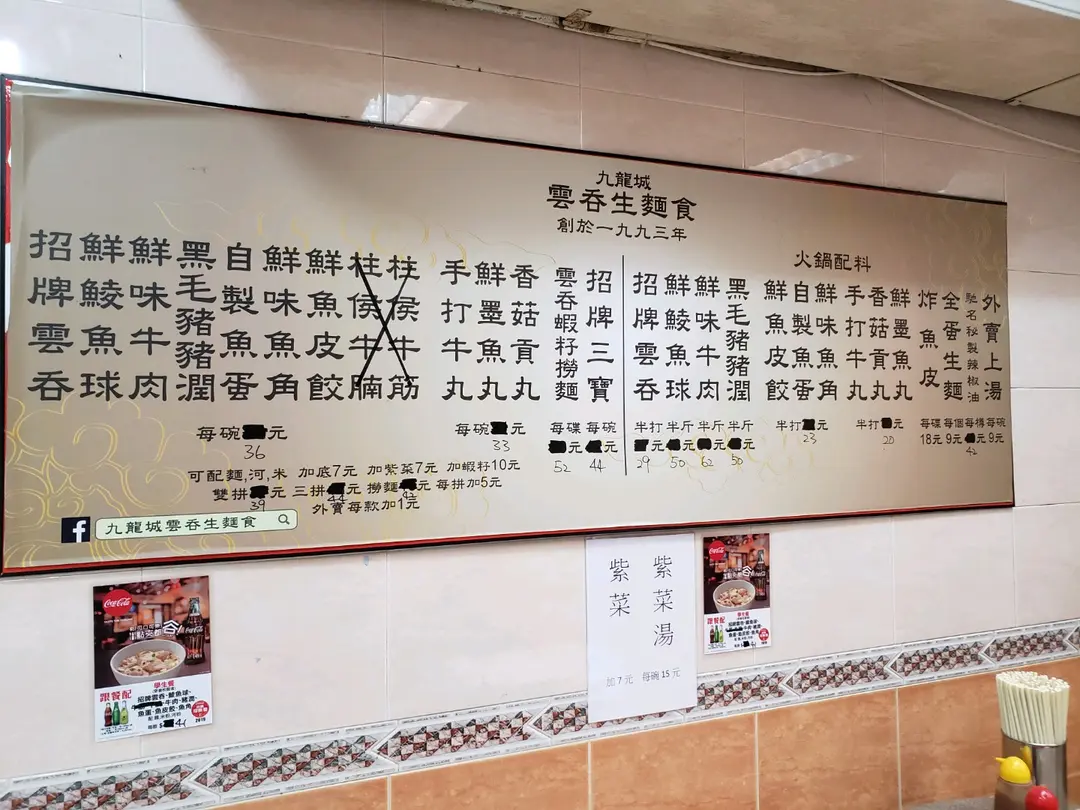 九龍城
雲吞生麵食
創於一九九三年
招牌雲吞
鮮鯪魚球
鮮味牛肉
黑毛豬豬潤
自製魚蛋
鮮味魚角
鮮魚皮餃
柱侯牛腩
柱侯牛筋
每碗元
36
手打牛丸
鮮墨魚丸
香菇貢丸
每碗元
33
雲吞蝦籽撈麵
每碟元
52
招牌三寶
每碗元
44
可配麵,河,米 加底7元 加紫菜7元 加蝦籽10元
雙拼元 三拼元 撈麵元 每拼加5元
39 44 42
外賣每款加1元
九龍城雲吞生麵食
火鍋配料
招牌雲吞
半打元
29
鮮鯪魚球
半斤元
50
鮮味牛肉
半斤元
62
黑毛豬豬潤
半斤元
50
鮮魚皮餃
自製魚蛋
鮮味魚角
半打元
23
手打牛丸
香菇貢丸
鮮墨魚丸
半打元
20
炸魚皮
每碟18元
全蛋生麵
每個9元
馳名秘製辣椒油
每樽元
42
外賣上湯
每碗9元
紫菜湯
每碗15元
紫菜
加7元
Coca-Cola
跟餐配
學生餐
招牌雲吞、鯪魚球、
牛肉、豬潤、
魚蛋、魚皮餃、魚角
Coca-Cola
跟餐配
學生餐